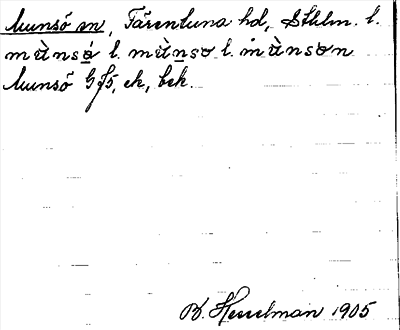 Munsö sn, Färentuna hd, Sthlm. l.
mùnsö l. mùnso l. mùnson
Munsö Gf5, ek, bek.
B. Hesselman 1905